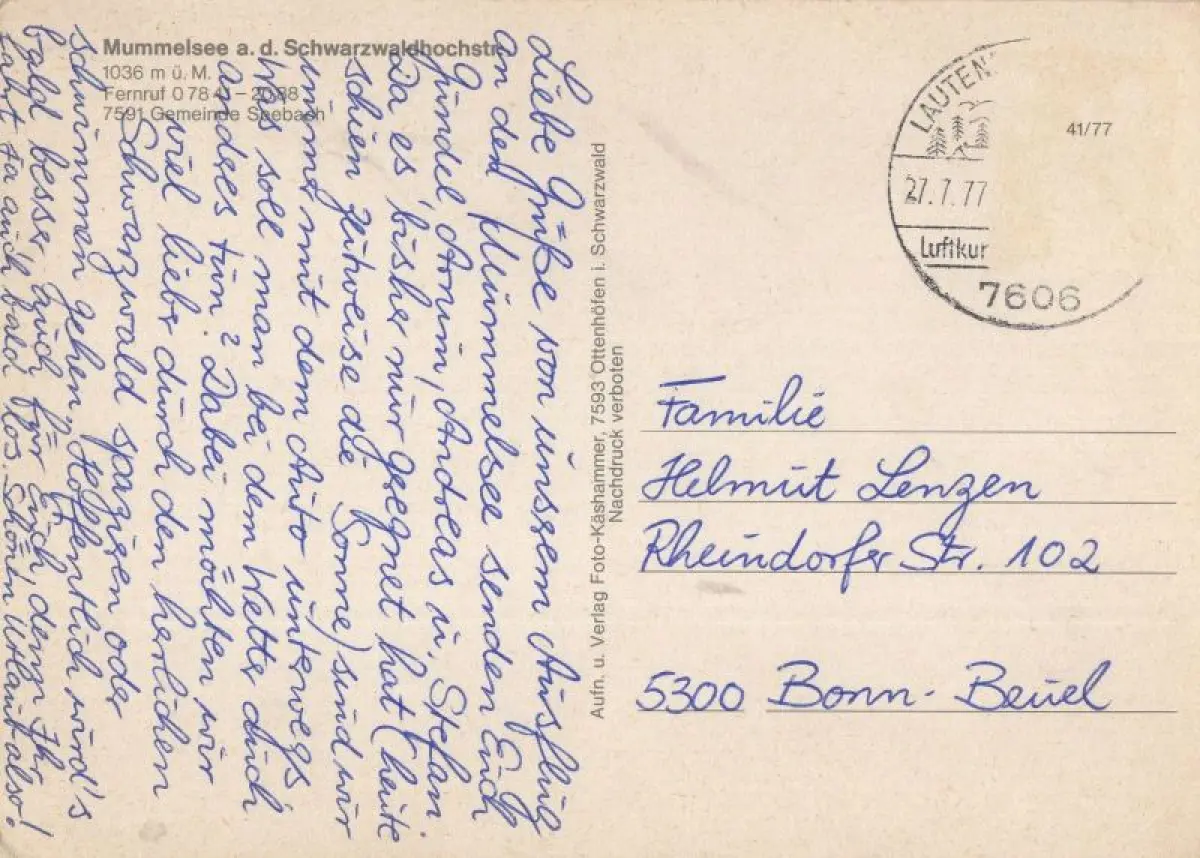 Mummelsee a. d. Schwarzwaldhochstr.
1036 m ü. M.
Fernruf 0 78 4
7591 Gemeinde Seebach
Liebe Grüße von unserem Ausflug
an den Mummelsee senden Euch
Gündel, Armin, Andreas u. Stefan.
Da es bisher nur geregnet hat (heute
schien zeitweise die Sonne) sind wir
immer mit dem Auto unterwegs.
Was soll man bei dem Wetter auch
anderes tun? Dabei möchten wir
viel lieber durch den herrlichen
Schwarzwald spazieren oder
schwimmen gehen. Hoffentlich wird's
bald besser, auch für Euch, denn Ihr
fahrt ja auch bald los. Schönen Urlaub also!
Aufn. u. Verlag Foto-Käshammer, 7593 Ottenhöfen i. Schwarzwald
Nachdruck verboten
LAUTEN
41/77
27.7.77
Luftkur
7606
Familie
Helmut Lenzen
Rheindorfer Str. 102
5300 Bonn-Beuel